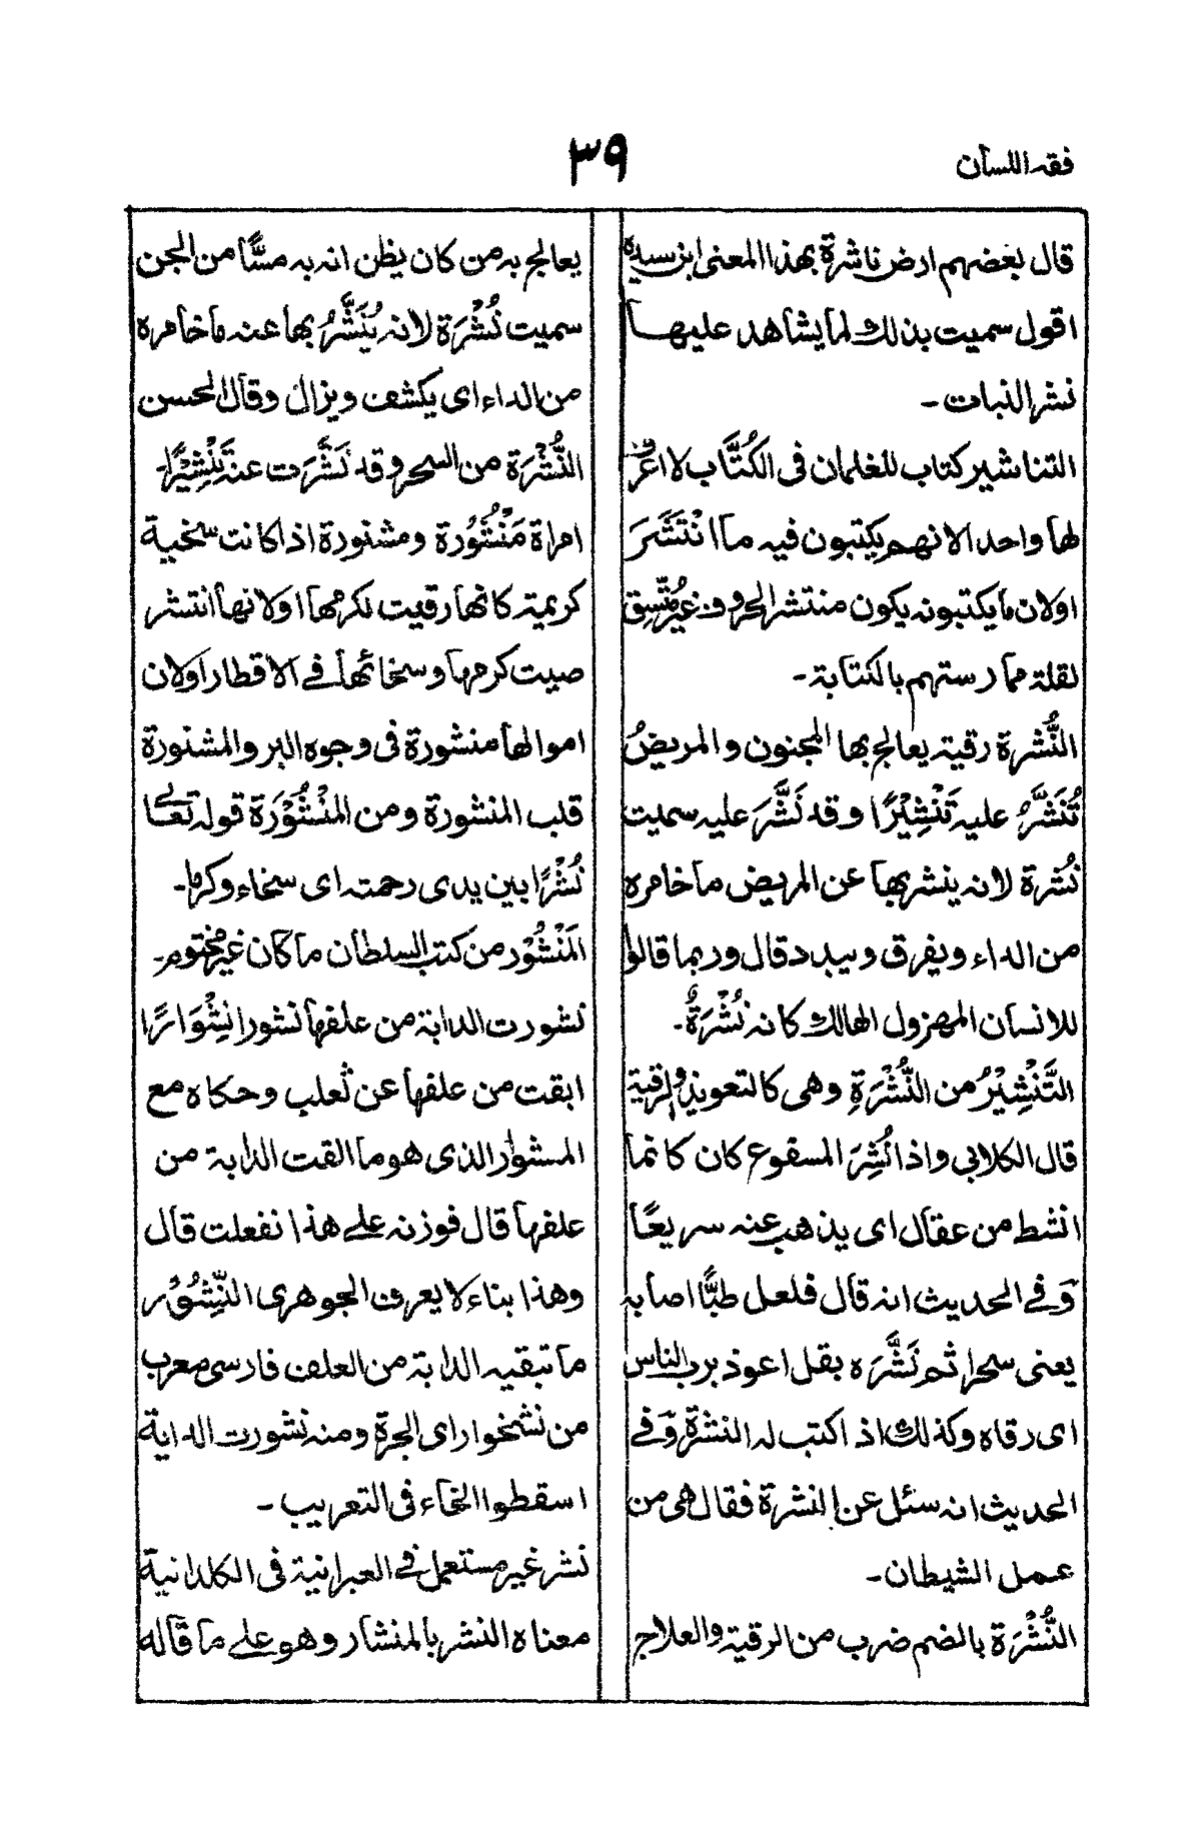 فقه اللسان
٣٩
قال بعضهم ارض ناشرة بهذا المعنى ابن سيده
اقول سميت بذلك لما يشاهد عليها
نشر النبات -
التناشير كتاب للغلمان فى الكُتَّاب لا اعرف
لها واحد الانهم يكتبون فيه ما انْتَشَرَ
اولان ما يكتبونه يكون منتشر الحروف غير مُتَّسِق
لقلة ممارستهم بالكتابة -
النُّشرة رقية يعالج بها المجنون والمريضُ
تُنَشَّرُ عليه تَنْشِيْرًا وقد نَشَّرَ عليه سميت
نُشرة لانه ينشر بها عن المريض ما خامره
من الداء ويفرق ويبدد قال وربما قالوا
للانسان المهزول الهالك كانه نُشْرَةٌ -
التَّنْشِيْرُ من النُّشْرَةِ وهى كالتعويذ والرقية
قال الكلابى واذا نُشِرَ المسقوع كان كانما
انشط من عقال اى يذهب عنه سريعًا
وَفى الحديث انه قال فلعل طبًّا اصابه
يعنى سحرا ثم نَشَّرَه بقل اعوذ برب الناس
اى رقاه وكذلك اذ اكتب له النشرة وَفى
الحديث انه سئل عن النشرة فقال هى من
عمل الشيطان -
النُّشْرَة بالضم ضرب من الرقية والعلاج
يعالج به من كان يظن انه به مسًّا من الجن
سميت نُشْرَة لانه يُنَشَّرُ بها عنه ما خامره
من الداء اى يكشف ويزال وقال الحسن
النُّشْرَة من السحر وقد نَشَّرَت عنه تَنْشِيْرًا -
امراة مَنْشُوْرة ومشنورة اذا كانت سخية
كريمة كانها رقيت لكرمها اولانها انتشر
صيت كرمها وسخائها فى الاقطار اولان
اموالها منشورة فى وجوه البر والمشنورة
قلب المنشورة ومن المَنْشُوْرَة قوله تعالى
نُشْرًا بين يدى رحمته اى سخاء وكرما -
المَنْشُوْر من كتب السلطان ما كان غير مختوم -
نشورت الدابة من علفها نشورا نِشْوَارًا
ابقت من علفها عن ثعلب وحكاه مع
المشوار الذى هو ما القت الدابة من
علفها قال فوزنه على هذا نفعلت قال
وهذا بناء لا يعرف الجوهرى النِّشْوَر
ما تبقيه الدابة من العلف فارسى معرب
من نشخوار اى الجرة ومنه نشورت الداية
اسقطوا الخاء فى التعريب -
نشر غير مستعمل فى العبرانية فى الكلدانية
معناه النشر بالمنشار وهو على ما قاله